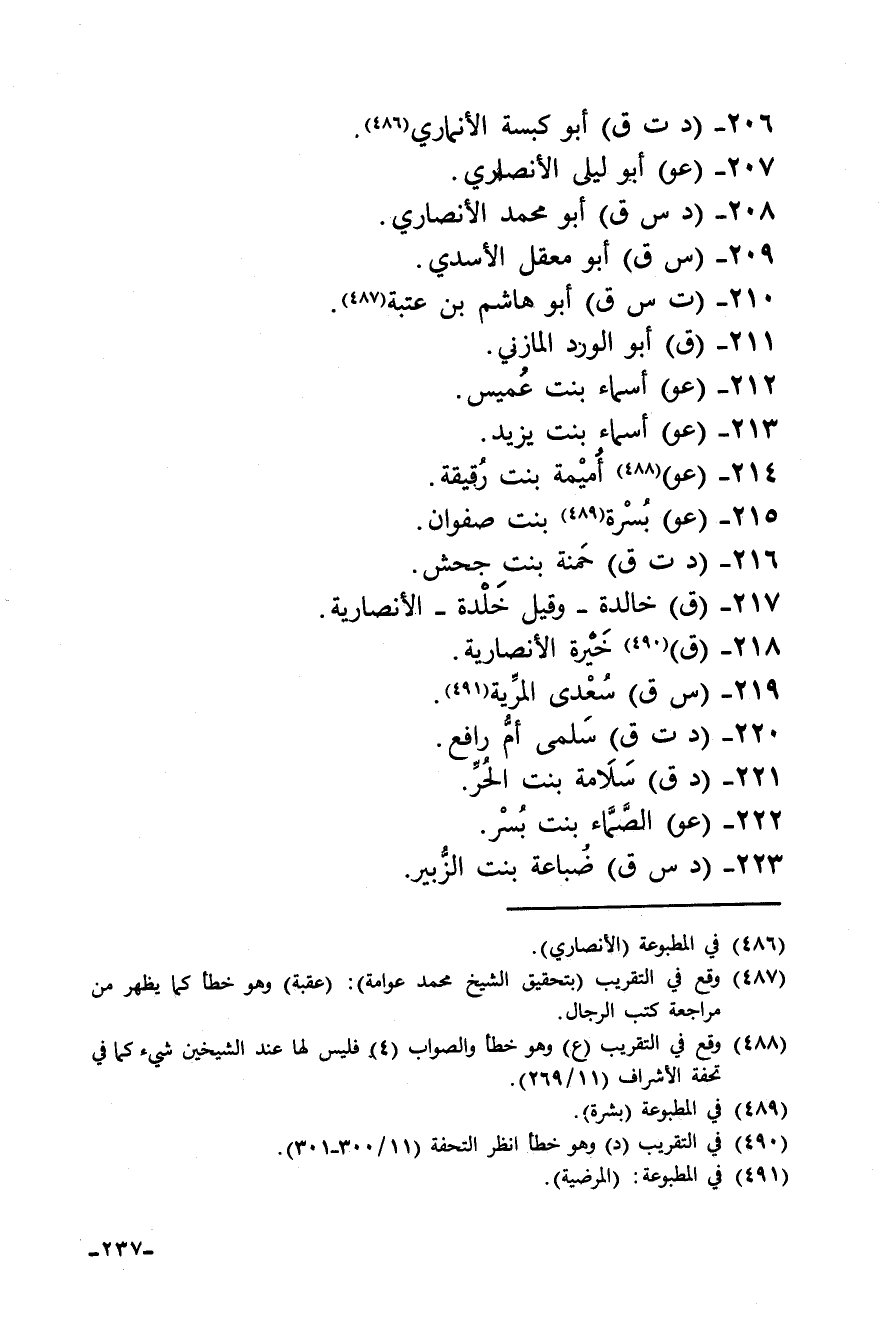 ٢٠٦ـ (د ت ق) أبو كبسة الأنماري(٤٨٦).
٢٠٧ـ (عو) أبو ليلى الأنصاري.
٢٠٨ـ (د س ق) أبو محمد الأنصاري.
٢٠٩ـ (س ق) أبو معقل الأسدي.
٢١٠ـ (ت س ق) أبو هاشم بن عتبة(٤٨٧).
٢١١ـ (ق) أبو الورد المازني.
٢١٢ـ (عو) أسماء بنت عُميس.
٢١٣ـ (عو) أسماء بنت يزيد.
٢١٤ـ (عو)(٤٨٨) أُميْمة بنت رُقيقة.
٢١٥ـ (عو) بُسْرة(٤٨٩) بنت صفوان.
٢١٦ـ (د ت ق) حَمنة بنت جحش.
٢١٧ـ (ق) خالدة ـ وقيل خَلْدة ـ الأنصارية.
٢١٨ـ (ق)(٤٩٠) خَيْرة الأنصارية.
٢١٩ـ (س ق) سُعْدى المرِّية(٤٩١).
٢٢٠ـ (د ت ق) سَلمى أمُّ رافع.
٢٢١ـ (د ق) سَلَامة بنت الحُرِّ.
٢٢٢ـ (عو) الصَّمَّاء بنت بُسْر.
٢٢٣ـ (د س ق) ضُباعة بنت الزُّبير.
(٤٨٦) في المطبوعة (الأنصاري).
(٤٨٧) وقع في التقريب (بتحقيق الشيخ محمد عوامة): (عقبة) وهو خطأ كما يظهر من
مراجعة كتب الرجال.
(٤٨٨) وقع في التقريب (ع) وهو خطأ والصواب (٤) فليس لها عند الشيخين شيء كما في
تحفة الأشراف (٢٦٩/١١).
(٤٨٩) في المطبوعة (بشرة).
(٤٩٠) في التقريب (د) وهو خطأ انظر التحفة (٣٠٠/١١ـ٣٠١).
(٤٩١) في المطبوعة: (المرضية).
ـ٢٣٧ـ